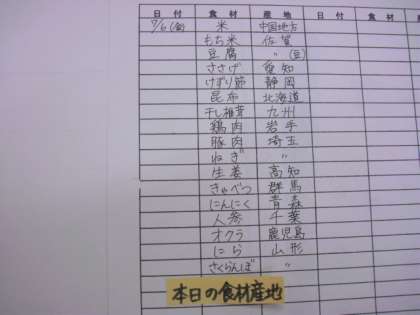 日付 食材 産地 日付 食材
7/6(金) 米 中国地方
もち米 佐賀
豆腐 〃(豆)
ささげ 愛知
けずり節 静岡
昆布 北海道
干し椎茸 九州
鶏肉 岩手
豚肉 埼玉
ねぎ 〃
生姜 高知
きゃべつ 群馬
にんにく 青森
人参 千葉
オクラ 鹿児島
にら 山形
さくらんぼ 〃
本日の食材産地